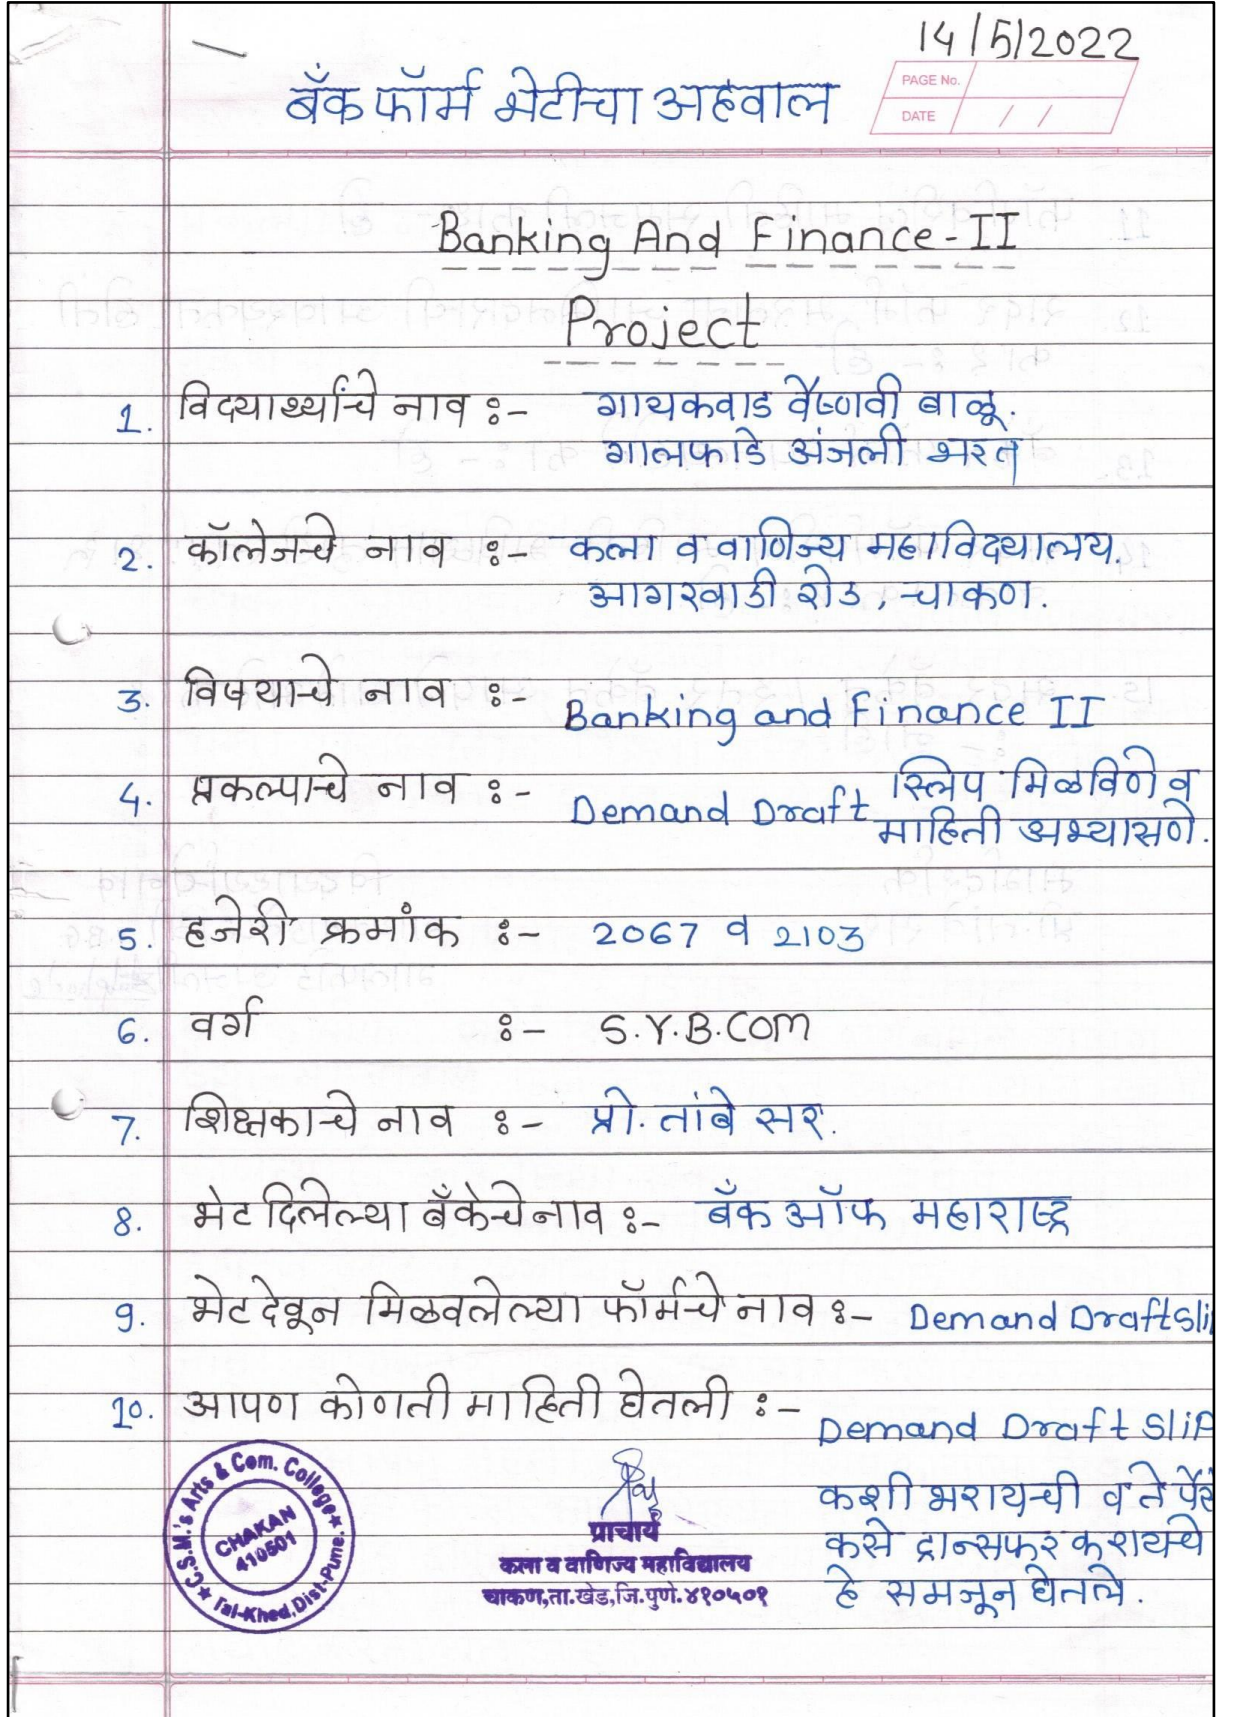 14/5/2022
PAGE No.
DATE / /
बँक फॉर्म भेटीचा अहवाल
Banking And Finance-II
Project
1. विद्यार्थ्यांचे नाव :- गायकवाड वैष्णवी बाळू.
गालफाडे अंजली भरत
2. कॉलेजचे नाव :- कला व वाणिज्य महाविद्यालय.
आगरवाडी रोड, चाकण.
3. विषयाचे नाव :- Banking and Finance II
4. प्रकल्पाचे नाव :- Demand Draft स्लिप मिळविणे व
माहिती अभ्यासणे.
5. हजेरी क्रमांक :- 2067 व 2103
6. वर्ग :- S.Y.B.COM
7. शिक्षकाचे नाव :- प्रो. तांबे सर.
8. भेट दिलेल्या बँकेचे नाव :- बँक ऑफ महाराष्ट्र
9. भेट देवून मिळवलेल्या फॉर्मचे नाव :- Demand Draft Sli
10. आपण कोणती माहिती घेतली :- Demand Draft Slip
कशी भरायची व ते
कसे ट्रान्सफर करायचे
हे समजून घेतले.
C.S.S.M.'s Arts & Com. College
CHAKAN
410501
Tal-Khed, Dist-Pune.
प्राचार्य
कला व वाणिज्य महाविद्यालय
चाकण,ता.खेड,जि.पुणे.४१०५०१